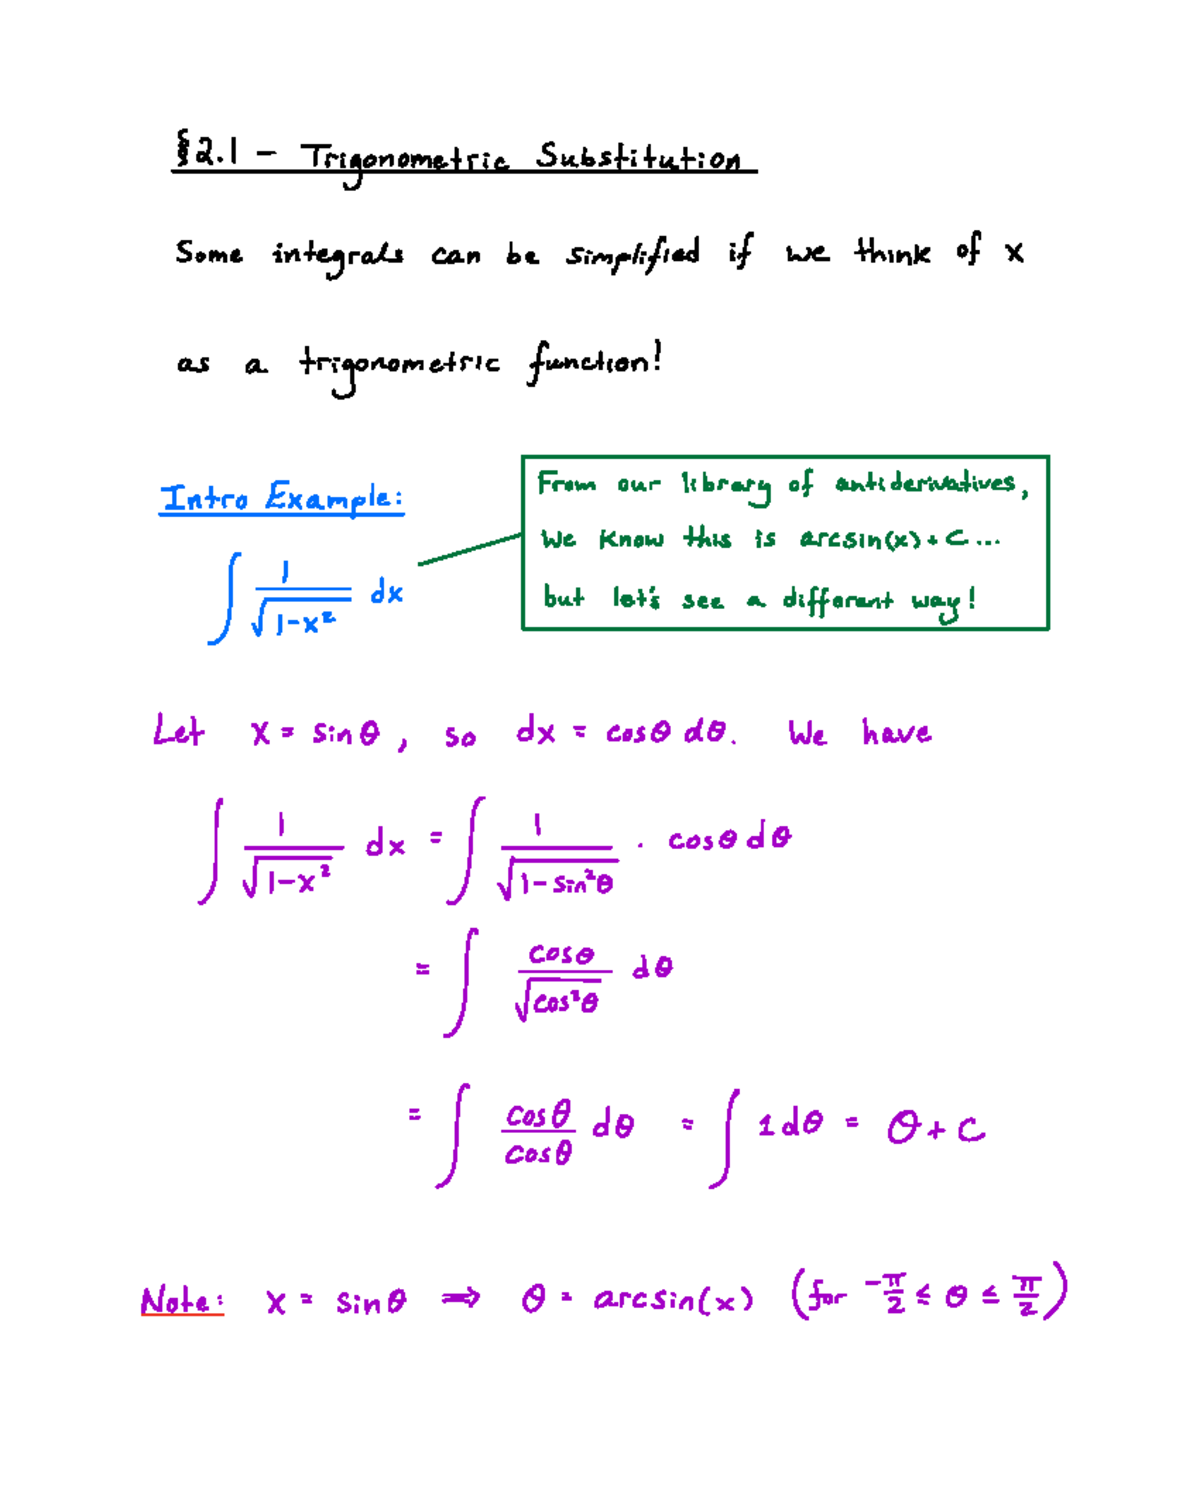 §2.1 – Trigonometric Substitution
Some integrals can be simplified if we think of x
as a trigonometric function!
Intro Example:
∫ 1/√(1-x²) dx
From our library of antiderivatives,
we know this is arcsin(x) + C ...
but let's see a different way!
Let x = sinθ, so dx = cosθ dθ. We have
∫ 1/√(1-x²) dx = ∫ 1/√(1-sin²θ) · cosθ dθ
= ∫ cosθ/√(cos²θ) dθ
= ∫ cosθ/cosθ dθ = ∫ 1 dθ = θ + C
Note: x = sinθ ⟹ θ = arcsin(x) (for -π/2 ≤ θ ≤ π/2)